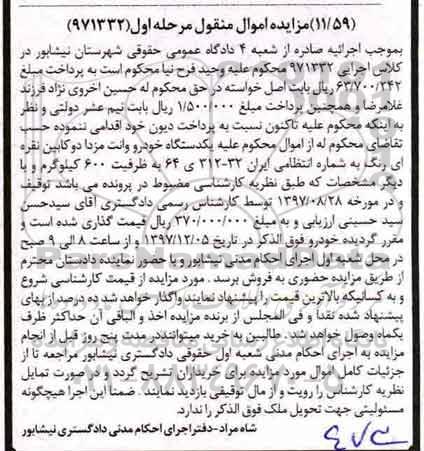 (۱۱/۵۹)مزایده اموال منقول مرحله اول(۹۷۱۳۳۲)
بموجب اجرائیه صادره از شعبه ۴ دادگاه عمومی حقوقی شهرستان نیشابور در
کلاس اجرایی ۹۷۱۳۳۲ محکوم علیه وحید فرح نیا محکوم است به پرداخت مبلغ
۶۳/۷۰۰/۳۴۲ ریال بابت اصل خواسته در حق محکوم له حسین اخروی نژاد فرزند
غلامرضا و همچنین پرداخت مبلغ ۱/۵۰۰/۰۰۰ ریال بابت نیم عشر دولتی و نظر
به اینکه محکوم علیه تاکنون نسبت به پرداخت دیون خود اقدامی ننموده حسب
تقاضای محکوم له از اموال محکوم علیه یکدستگاه خودرو وانت مزدا دوکابین نقره
ای رنگ به شماره انتظامی ایران ۳۲-۳۱۲ ی ۶۴ به ظرفیت ۶۰۰ کیلوگرم و با
دیگر مشخصات که طبق نظریه کارشناسی مضبوط در پرونده می باشد توقیف
و در مورخه ۱۳۹۷/۰۸/۲۸ توسط کارشناس رسمی دادگستری آقای سیدحسن
سید حسینی ارزیابی و به مبلغ ۳۷۰/۰۰۰/۰۰۰ ریال قیمت گذاری شده است و
مقرر گردیده خودرو فوق الذکر در تاریخ ۱۳۹۷/۱۲/۰۵ و از ساعت ۸ الی ۹ صبح
در محل شعبه اول اجرای احکام مدنی نیشابور و با حضور نماینده دادستان محترم
از طریق مزایده حضوری به فروش برسد . مورد مزایده از قیمت کارشناسی شروع
و به کسانیکه بالاترین قیمت را پیشنهاد نمایند واگذار خواهد شد ده درصد از بهای
پیشنهاد شده نقداً و فی المجلس از برنده مزایده اخذ و الباقی آن حداکثر ظرف
یکماه وصول خواهد شد. طالبین به خرید میتوانند در مدت پنج روز قبل از انجام
مزایده به اجرای احکام مدنی شعبه اول حقوقی دادگستری نیشابور مراجعه تا از
جزئیات کامل اموال مورد مزایده برای خریداران تشریح گردد و در صورت تمایل
نظریه کارشناس را رویت و از مال توقیفی بازدید نمایند . ضمنا این اجرا هیچگونه
مسئولیتی جهت تحویل ملک فوق الذکر را ندارد.
شاه مراد-دفتر اجرای احکام مدنی دادگستری نیشابور